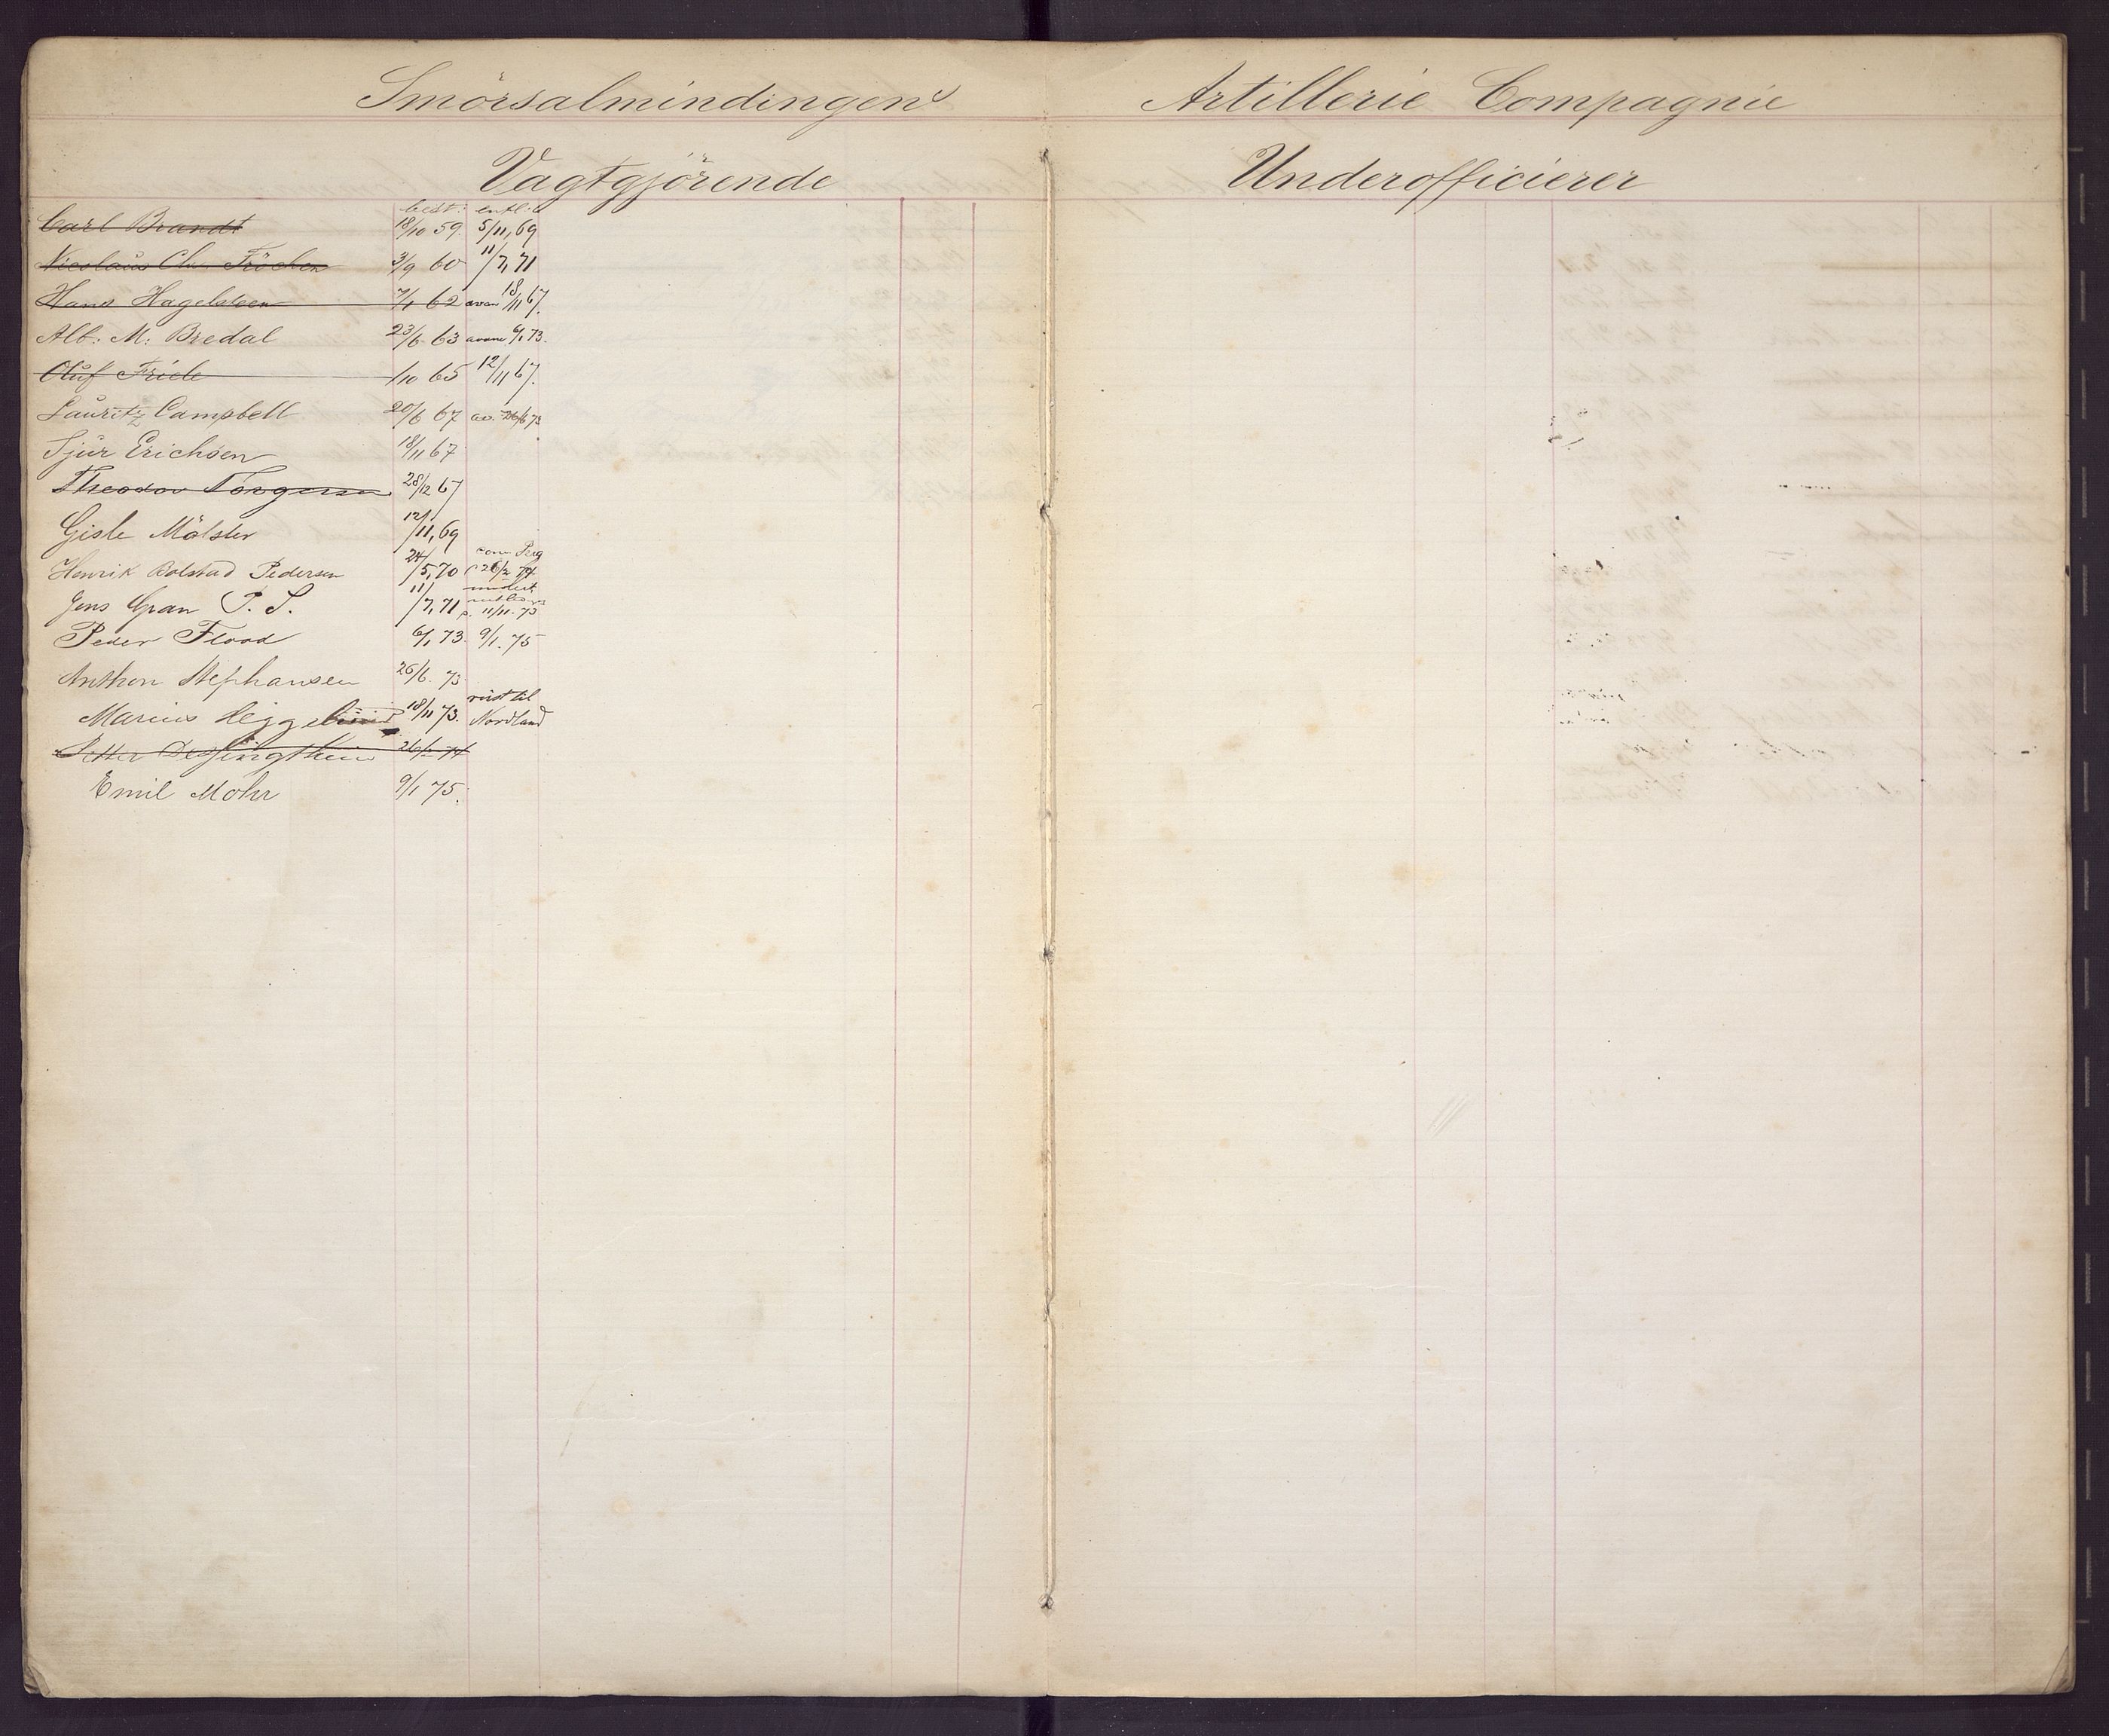 Smörsalmindingens Artillerie Compagnie
Vagtgjörende Underofficierer
best: entl:
Carl Brandt 18/10 59. 5/11, 69
Nicolaus Chr. Fröchen 3/9 60 11/7, 71
Hans Hagelsteen 7/1 62 avan 18/11 67.
Alb: M: Bredal 23/6 63 avanc 6/1 73.
Oluf Friele /10 65 12/11 67.
Lauritz Campbell 20/6 67 av. 26/6 73
Sjur Erichsen 18/11 67
Theodor Torgersen 28/12 67
Gisle Mölster 12/11, 69
Henrik Bolstad Pedersen 24/5, 70 26/2 74
Jens Gran P. S. 11/7, 71 11/11. 73
Peder Flood 6/1 73. 9/1. 75
Anthon Stephansen 26/6. 73
Marius Heggelund 18/11 73. reist til
Nordland
Petter 26/2 74
Emil Mohr 9/1 75.